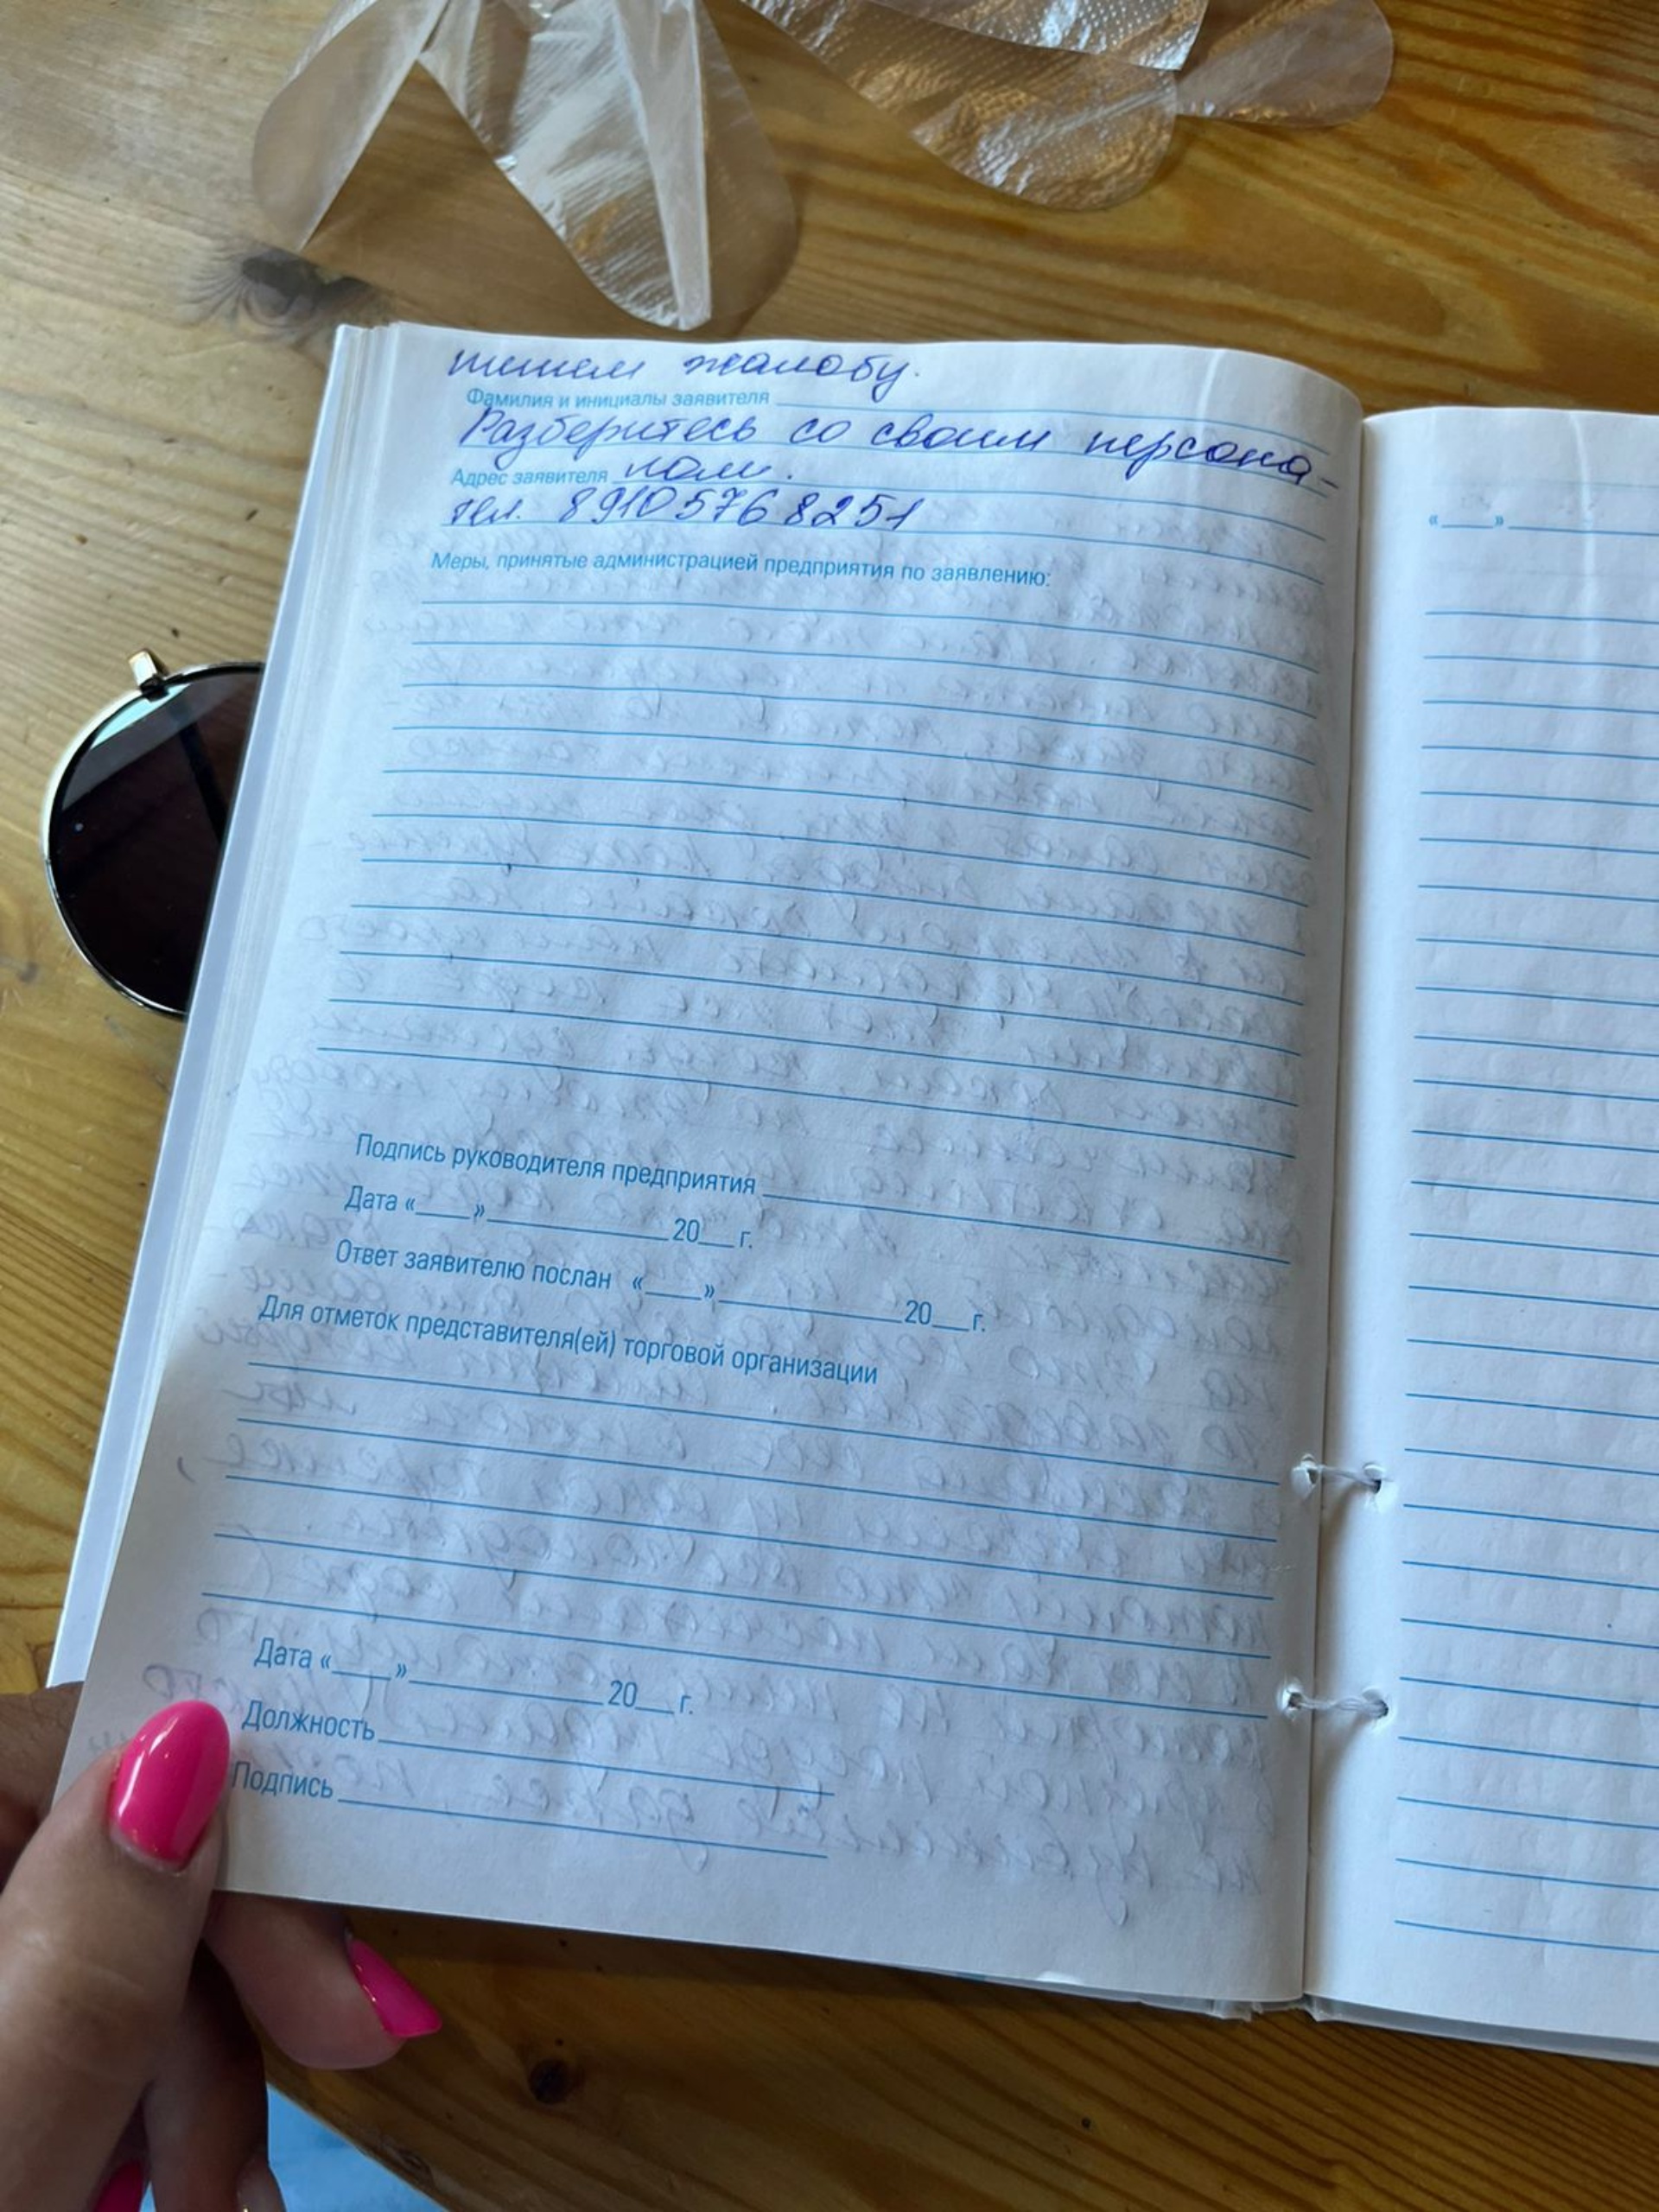 пишем жалобу.
Фамилия и инициалы заявителя
Разберитесь со своим персона-
Адрес заявителя лом.
тел. 89105768251
Меры, принятые администрацией предприятия по заявлению:
Подпись руководителя предприятия
Дата «____»____________20___г.
Ответ заявителю послан «____»____________20___г.
Для отметок представителя(ей) торговой организации
Дата «____»____________20___г.
Должность
Подпись
«____»